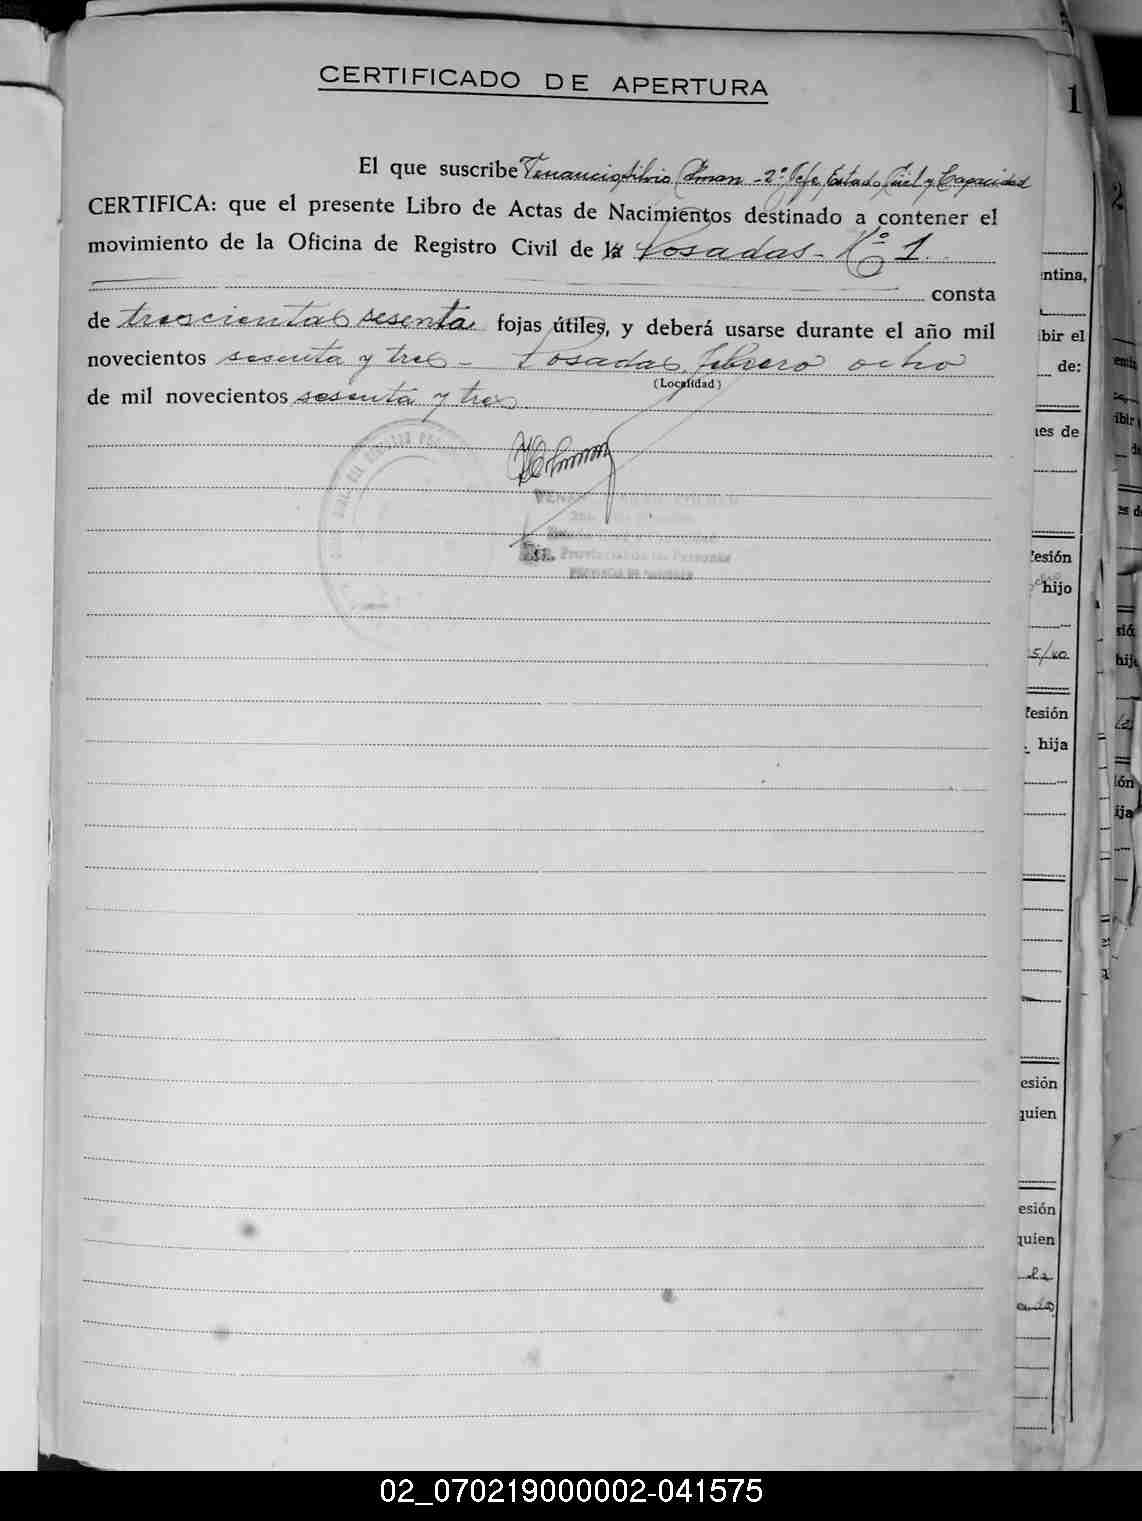 CERTIFICADO DE APERTURA
1
El que suscribe Venancio Silvio - 2º Jefe, Estado Civil y Capacidad
CERTIFICA: que el presente Libro de Actas de Nacimientos destinado a contener el
movimiento de la Oficina de Registro Civil de la Posadas - Nº 1
consta
de trescientas sesenta fojas útiles, y deberá usarse durante el año mil
novecientos sesenta y tres - Posadas, febrero ocho
(Localidad)
de mil novecientos sesenta y tres
Dir. Provincial de las Personas
PROVINCIA DE MISIONES
2
ntina,
bir el
de:
nes de
fesión
hijo
fesión
hija
esión
quien
esión
quien
02_070219000002-041575